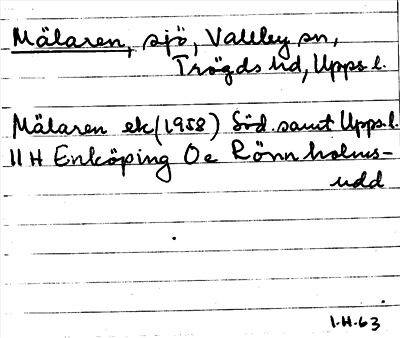 Mälaren, sjö, Vallby sn,
Trögds hd, Upps.l.
Mälaren ek (1958) Söd. samt Upps.l.
11 H Enköping Oe Rönnholms-
udd
1.H.63